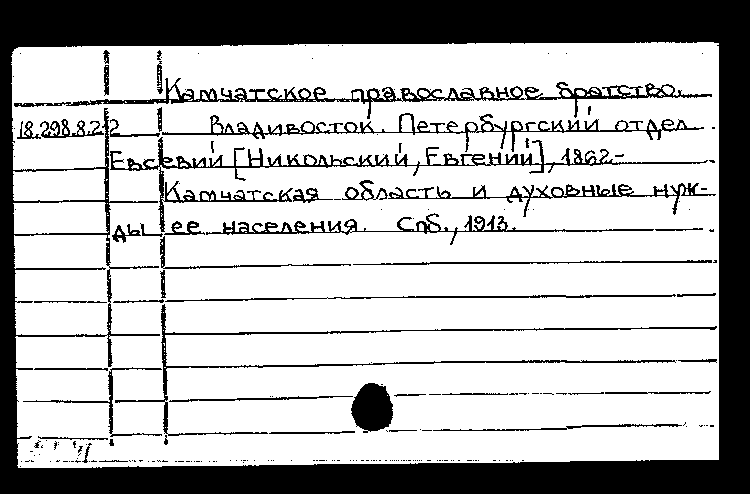 Камчатское православное братство.
18.298.8.22 Владивосток. Петербургский отдел.
Евсевий [Никольский, Евгений], 1862-
Камчатская область и духовные нуж-
ды ее населения. Спб., 1913.